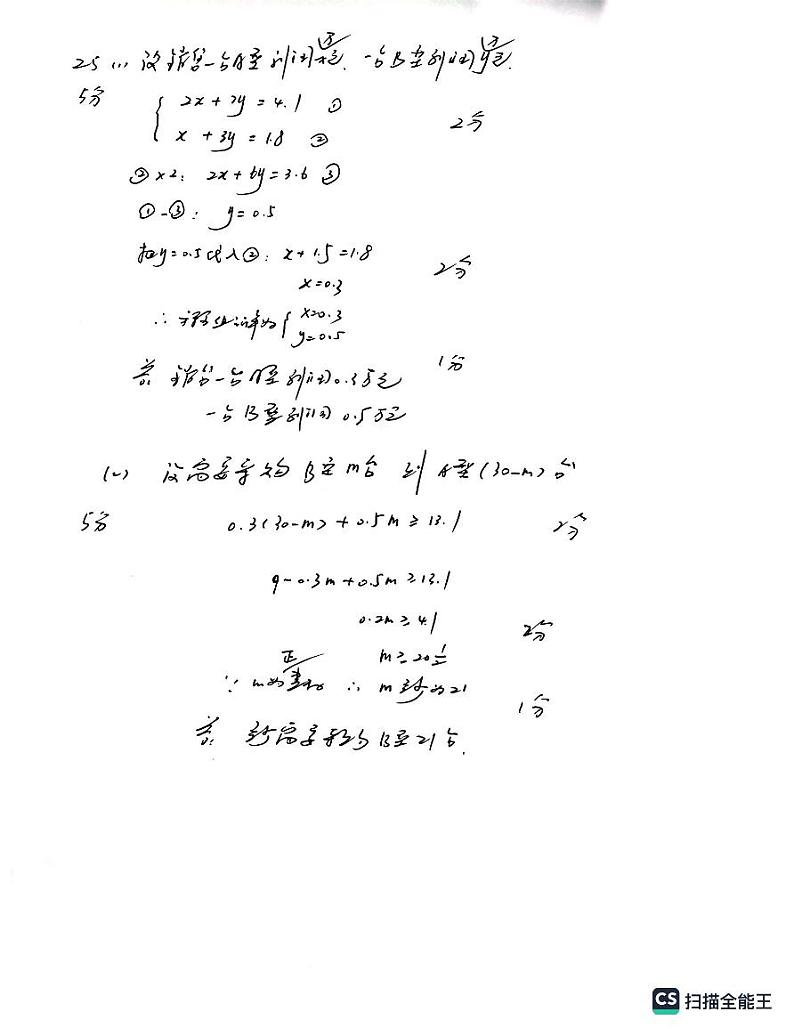 25 (1) 设销售一台A型利润x万元. 一台B型利润y万元.
5分
2x + 7y = 4.1 ①
x + 3y = 1.8 ② 2分
②×2: 2x + 6y = 3.6 ③
①-③: y = 0.5
把y=0.5代入②: x + 1.5 = 1.8
x = 0.3 2分
∴ 方程组的解为 { x=0.3
y=0.5
答 销售一台A型利润0.3万元 1分
一台B型利润0.5万元
(2) 设需要采购B型m台 则A型(30-m)台
5分 0.3(30-m) + 0.5m ≥ 13.1 2分
9-0.3m+0.5m ≥ 13.1
0.2m ≥ 4.1 2分
m ≥ 20 1/2
∵ m为正整数 ∴ m至少为21
1分
答 至少需要采购B型21台.
CS 扫描全能王